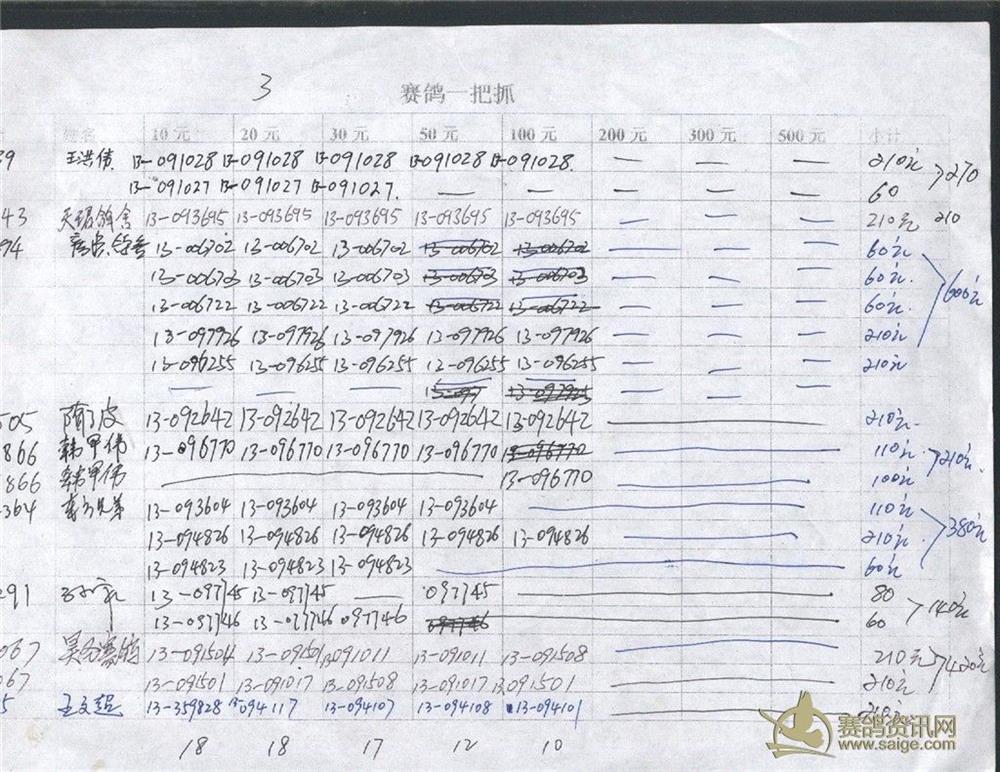 3
赛鸽一把抓
姓名 10 元 20 元 30 元 50 元 100 元 200 元 300 元 500 元 小计
39 王洪伟 13-091028 13-091028 13-091028 13-091028 13-091028 — — — 210元 >210
13-091027 13-091027 13-091027 — — — — — 60
43 天琚鸽舍 13-093695 13-093695 13-093695 13-093695 13-093695 — — — 210元 210
94 13-006702 13-006702 13-006702 13-006702 13-006702 — — — 60元
13-006703 13-006703 13-006703 13-006703 13-006703 — — — 60元. 600元
13-006722 13-006722 13-006722 13-006722 13-006722 — — — 60元
13-097926 13-097926 13-097926 13-097926 13-097926 — — — 210元
13-096255 13-096255 13-096255 12-096255 13-096255 — — — 210元
— — — 13-097 — — —
505 隋了皮 13-092642 13-092642 13-092642 13-092642 13-092642 — 210元
866 韩甲伟 13-096770 13-096770 13-096770 13-096770 13-096770 — 110元 >210元
866 韩甲伟 — 13-096770 — 100元
364 兄弟 13-093604 13-093604 13-093604 13-093604 — 110元
13-094826 13-094826 13-094826 13-094826 13-094826 — 210元 >380元
13-094823 13-094823 13-094823 — 60元
291 13-097745 13-097745 — 097745 — 80 >140元
13-097746 13-097746 097746 097746 — 60
067 13-091504 13-091501 13-091011 13-091011 13-091508 — 210元 >420元
067 13-091501 13-091017 13-091508 13-091017 13-091501 — 210元
5 王文超 13-359828 13-094117 13-094107 13-094108 13-094101 — 210元
18 18 17 12 10
赛鸽资讯网
www.saige.com